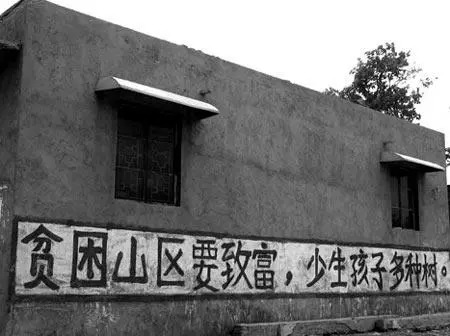 贫困山区要致富，少生孩子多种树。